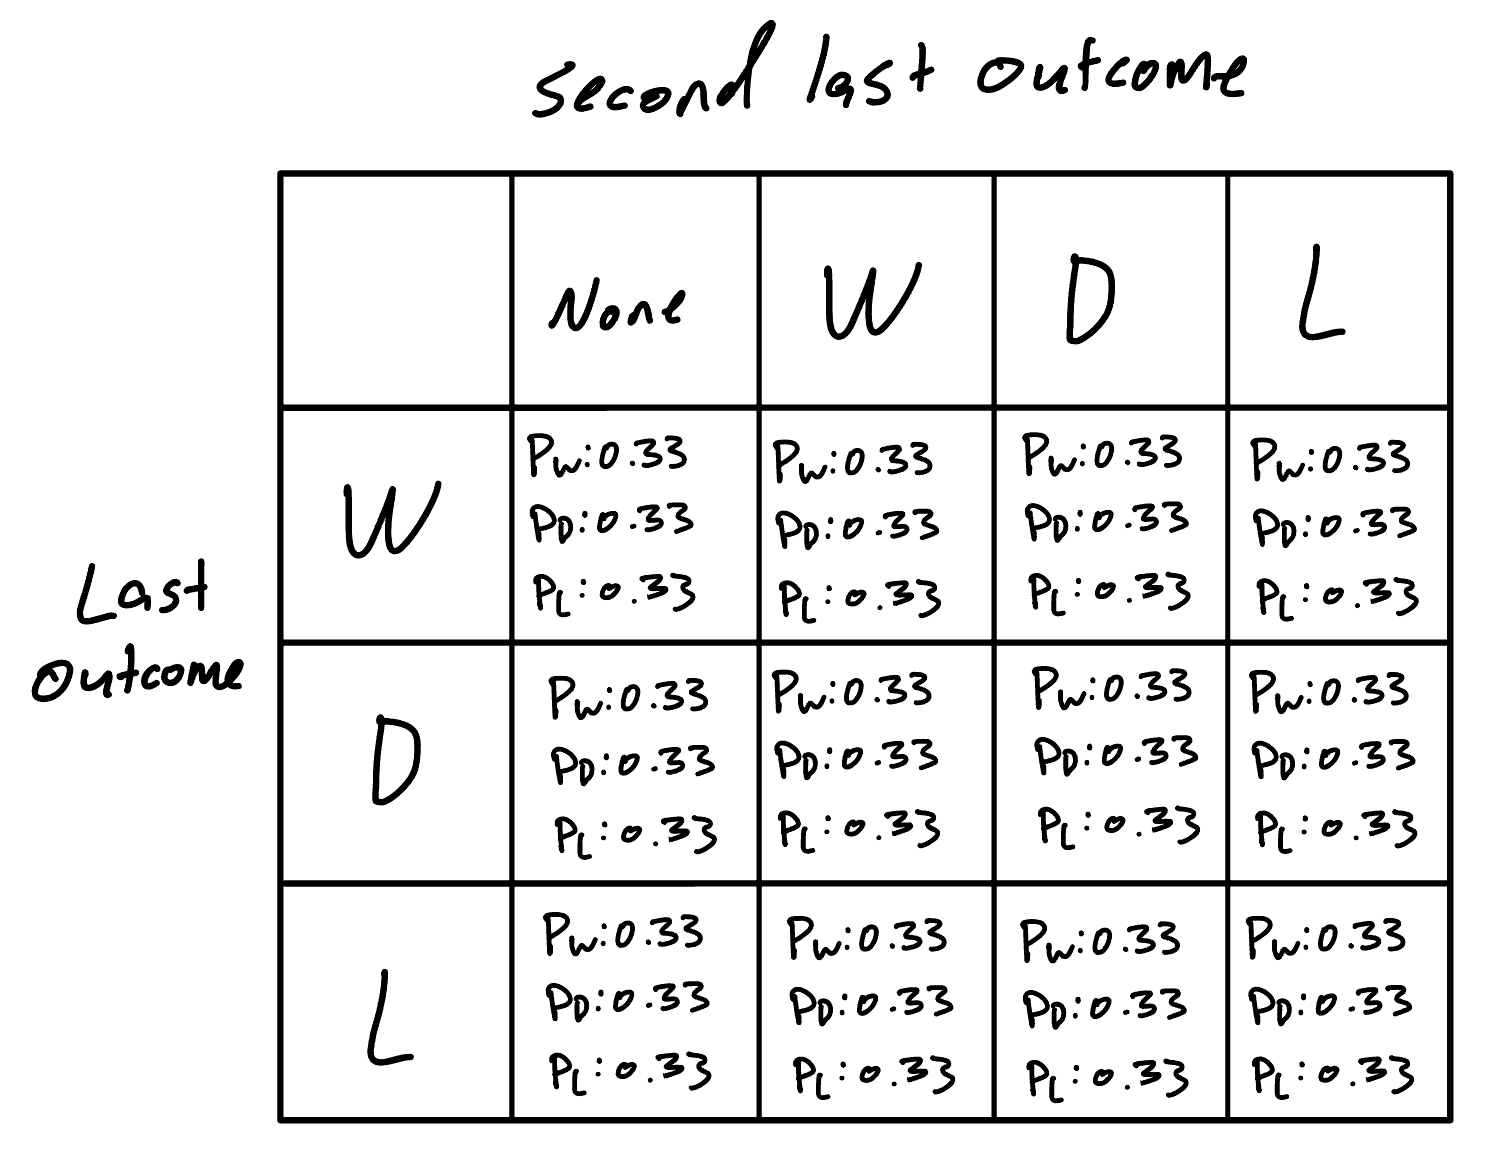 second last outcome
None W D L
W
Pw:0.33 Pw:0.33 Pw:0.33 Pw:0.33
PD:0.33 PD:0.33 PD:0.33 PD:0.33
PL:0.33 PL:0.33 PL:0.33 PL:0.33
Last
outcome
D
Pw:0.33 Pw:0.33 Pw:0.33 Pw:0.33
PD:0.33 PD:0.33 PD:0.33 PD:0.33
PL:0.33 PL:0.33 PL:0.33 PL:0.33
L
Pw:0.33 Pw:0.33 Pw:0.33 Pw:0.33
PD:0.33 PD:0.33 PD:0.33 PD:0.33
PL:0.33 PL:0.33 PL:0.33 PL:0.33